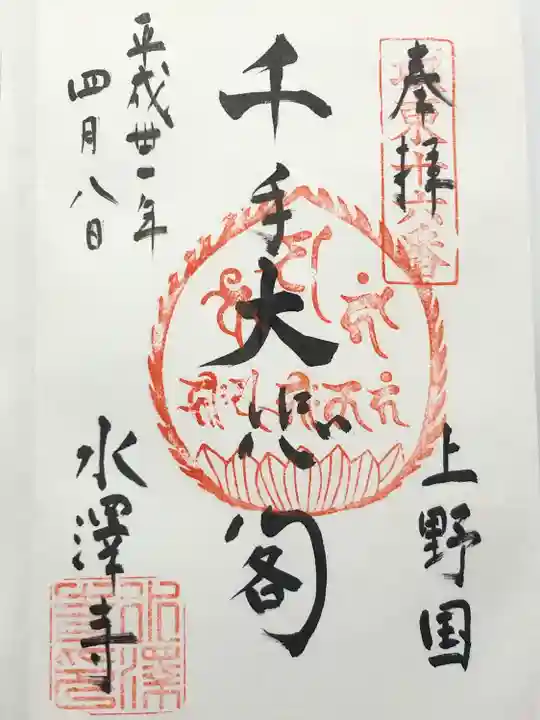 奉拝
坂東十六番
上野国
千手大悲閣
平成廿一年
四月八日
水澤寺